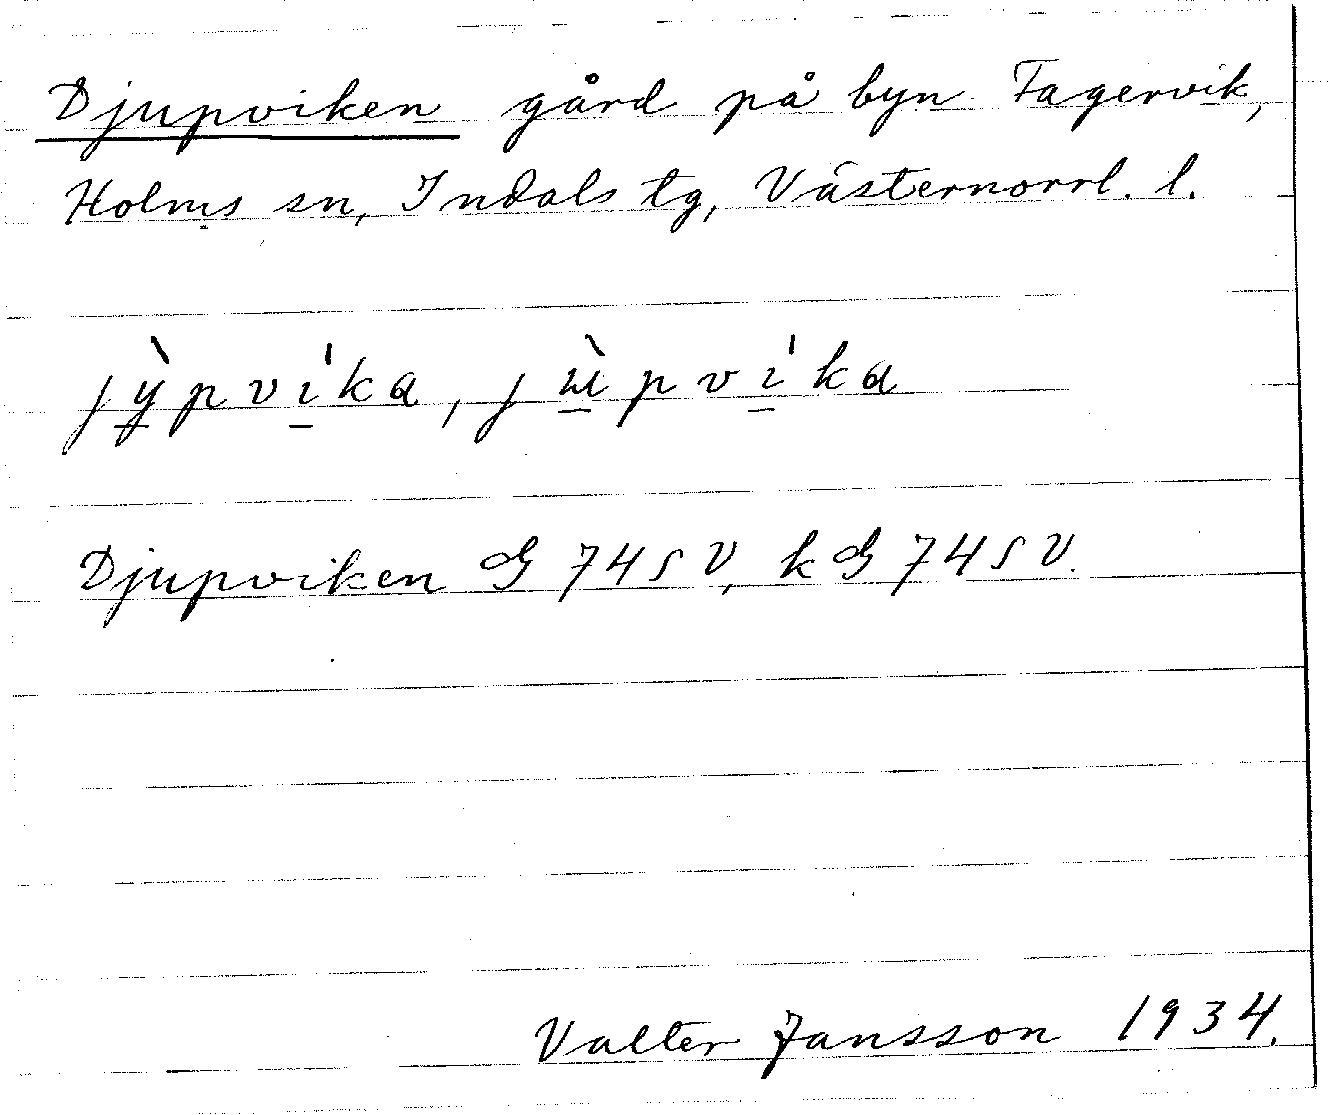 Djupviken gård på byn Fagervik,
Holms sn, Indals tg, Västernorrl. l.
jỳ̲pví̲ka, jù̲pví̲ka
Djupviken G 74 SV, kG 74 SV.
Valter Jansson 1934.